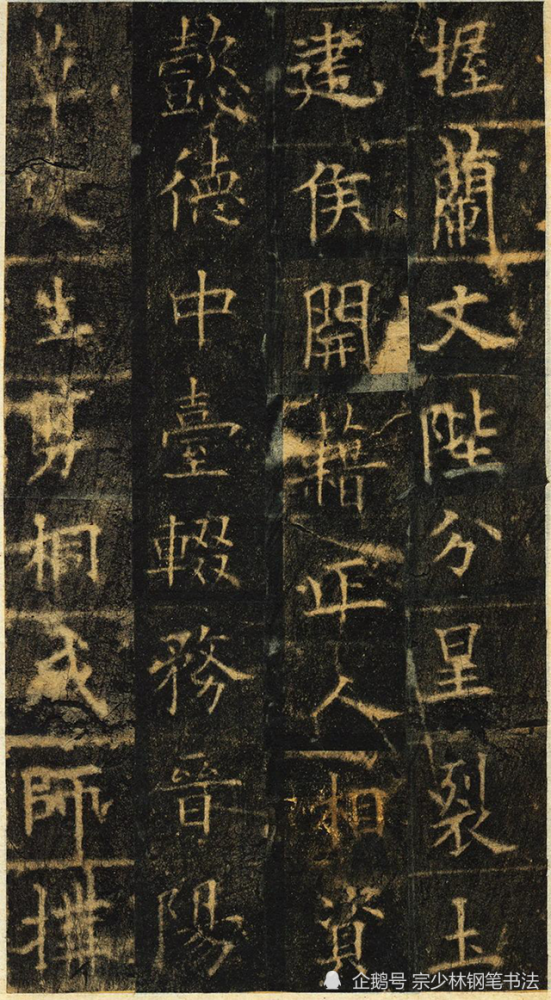 握蘭文陛分星裂土
建侯開藉正人相資
懿德中臺輟務晉陽
草剪桐成師撲
企鹅号 宗少林钢笔书法